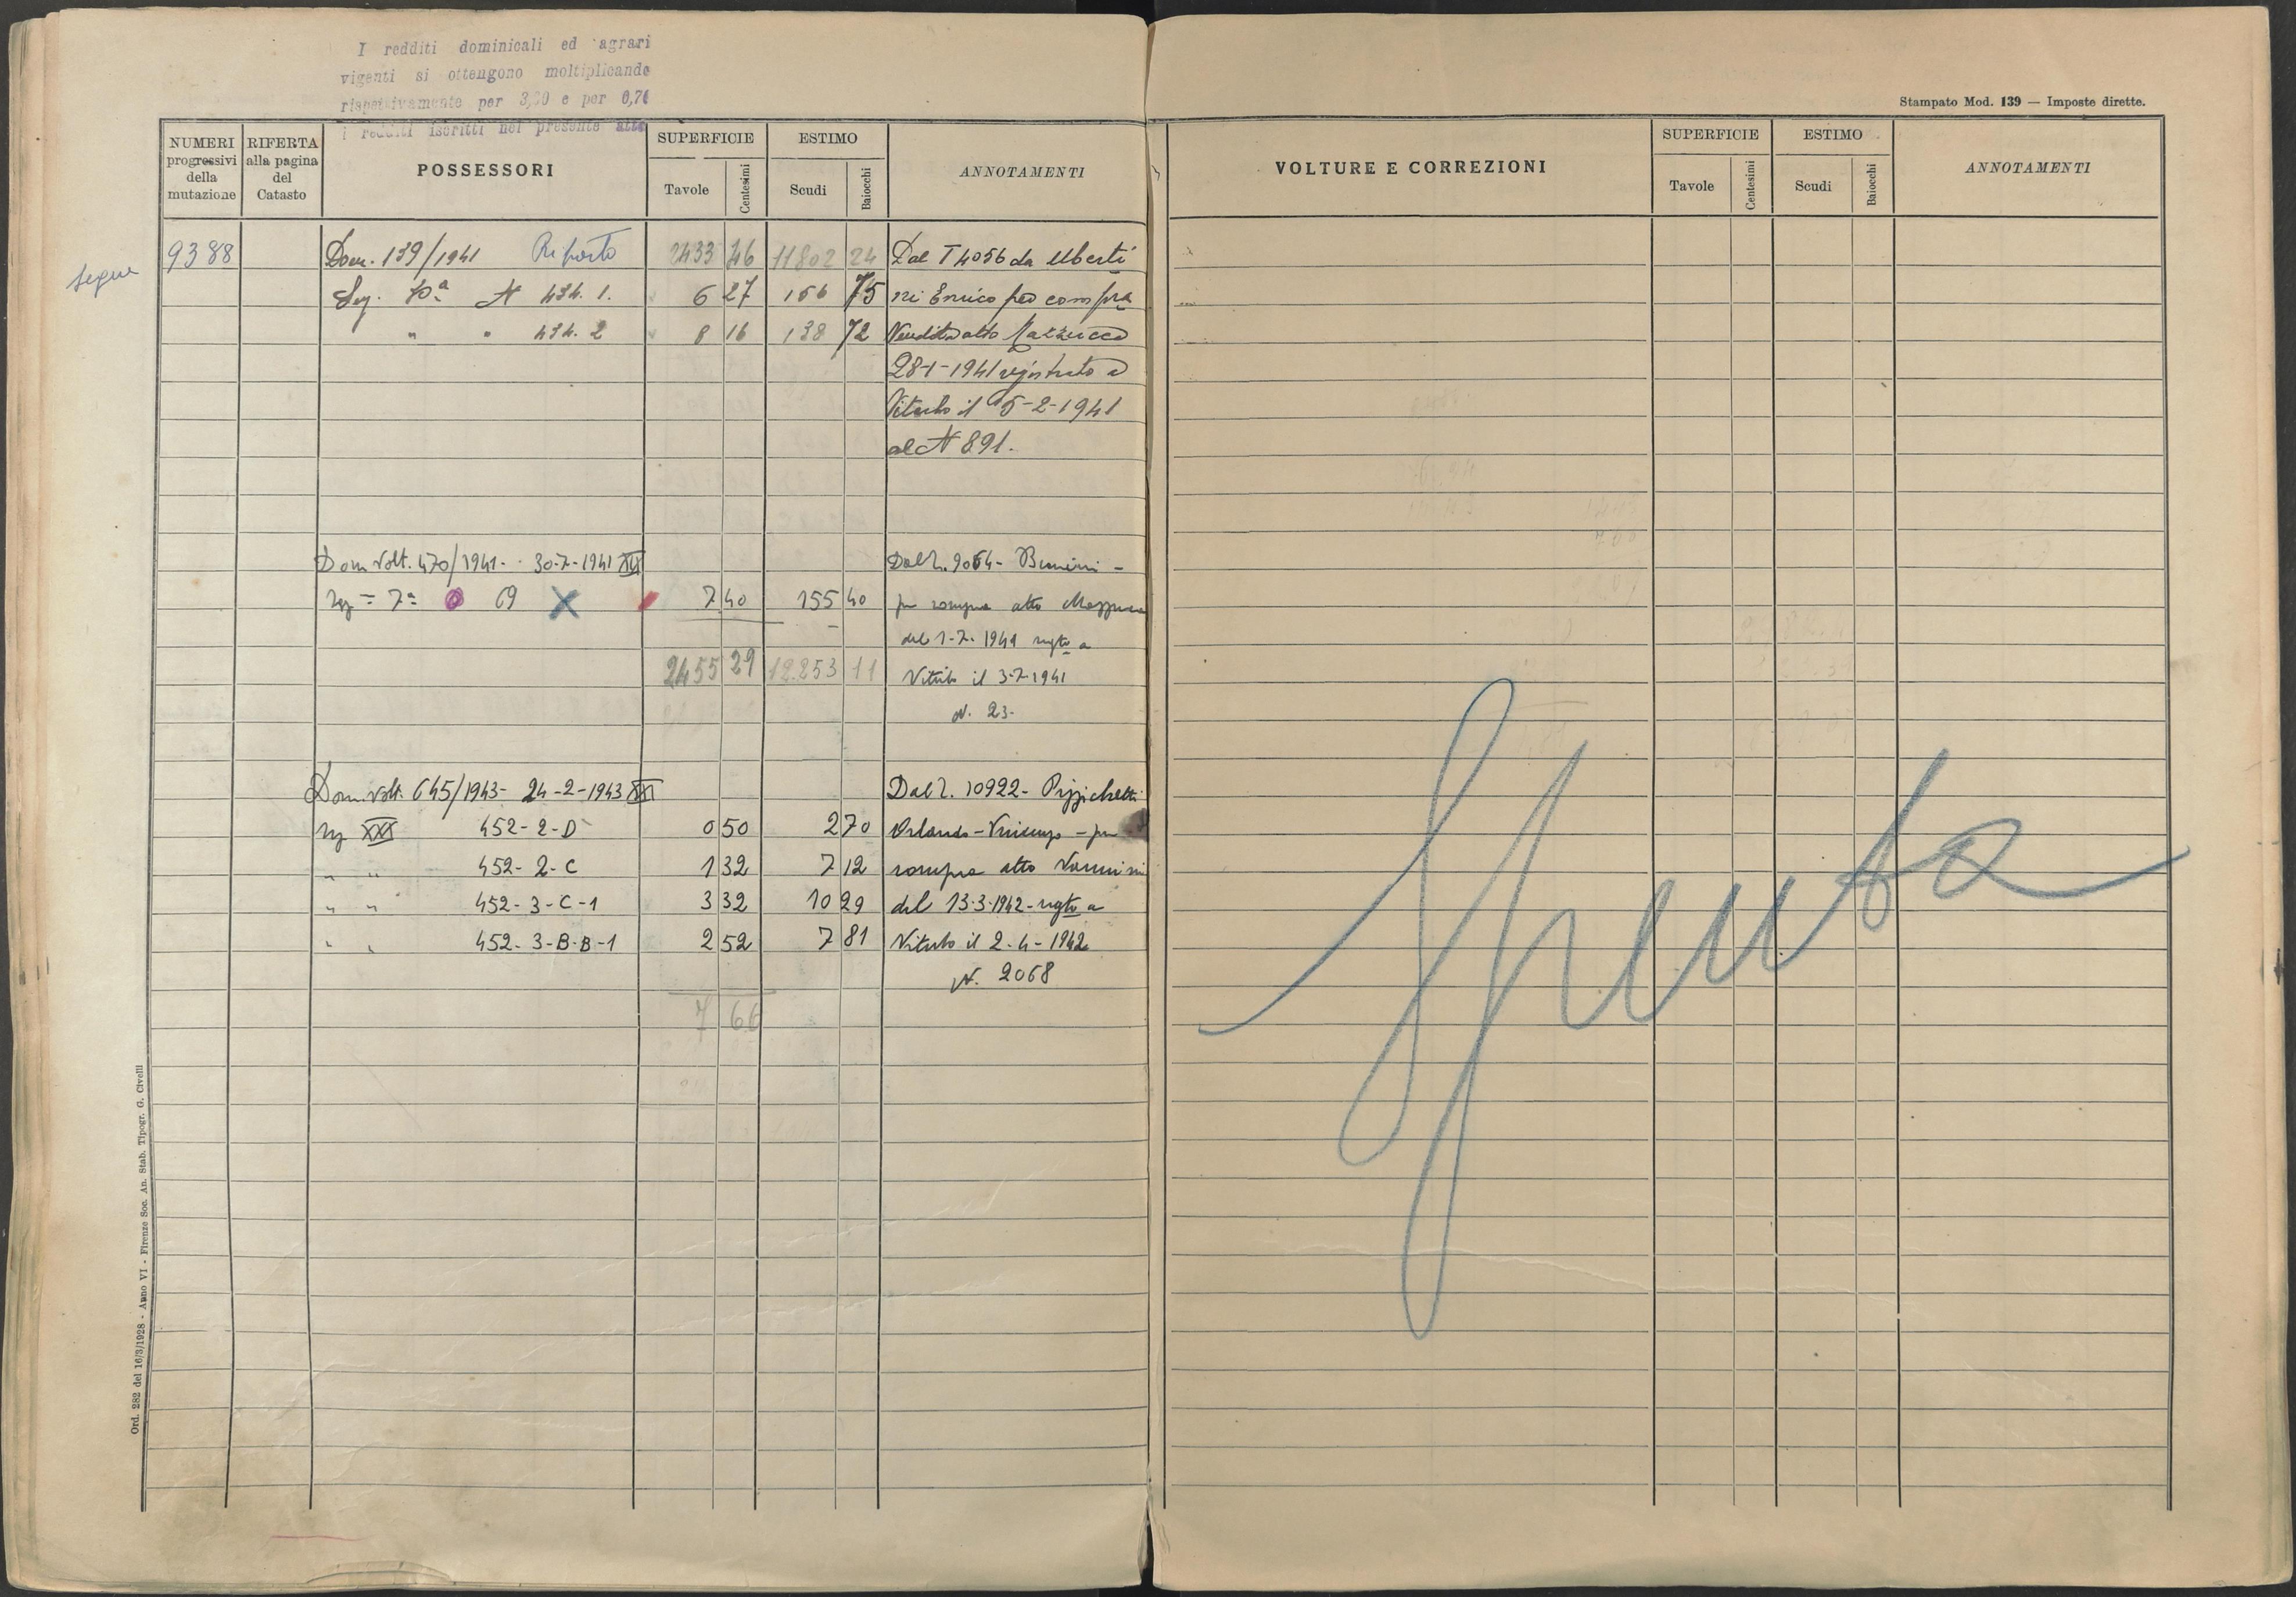 I redditi dominicali ed agrari
vigenti si ottengono moltiplicando
rispettivamente per 3,20 e per 0,76
i redditi iscritti nel presente atto
Stampato Mod. 139 — Imposte dirette.
NUMERI progressivi della mutazione
RIFERTA alla pagina del Catasto
POSSESSORI
SUPERFICIE
Tavole
Centesimi
ESTIMO
Scudi
Baiocchi
ANNOTAMENTI
VOLTURE E CORREZIONI
SUPERFICIE
Tavole
Centesimi
ESTIMO
Scudi
Baiocchi
ANNOTAMENTI
segue
9388 Dom. 139/1941 Riporto 2433 46 11802 24 Dal T 4056 da Uberti
Sez. N 434. 1. 6 27 156 75 ni Enrico per compra
" " 434. 2 8 16 138 72 Vendita atto Mazzucco
28-1-1941 registrato a
Viterbo il 15-2-1941
al N 891.
Dom Volt. 470/1941 - 30-7-1941 XIX Dal 2. 9064 -
Sez = 7ª 69 X 7 40 155 40 per compra atto
del 1-7-1941 regto a
2455 29 12.253 11 Viterbo il 3-7-1941
N. 23-
Dom. Volt. 645/1943 - 24-2-1943 XXI Dal 2. 10922 - Pizzichetti
Sez XXI 452-2-D 0 50 2 70 Orlando - Vincenzo - per
" " 452-2-C 1 32 7 12 compra atto Vannini
" " 452-3-C-1 3 32 10 29 del 13-3-1942 - regto a
" " 452-3-B-B-1 2 52 7 81 Viterbo il 2-4-1942
N. 2068
7 66
Spenta
Ord. 282 del 16/3/1928 - Anno VI - Firenze Soc. An. Stab. Tipogr. G. Civelli